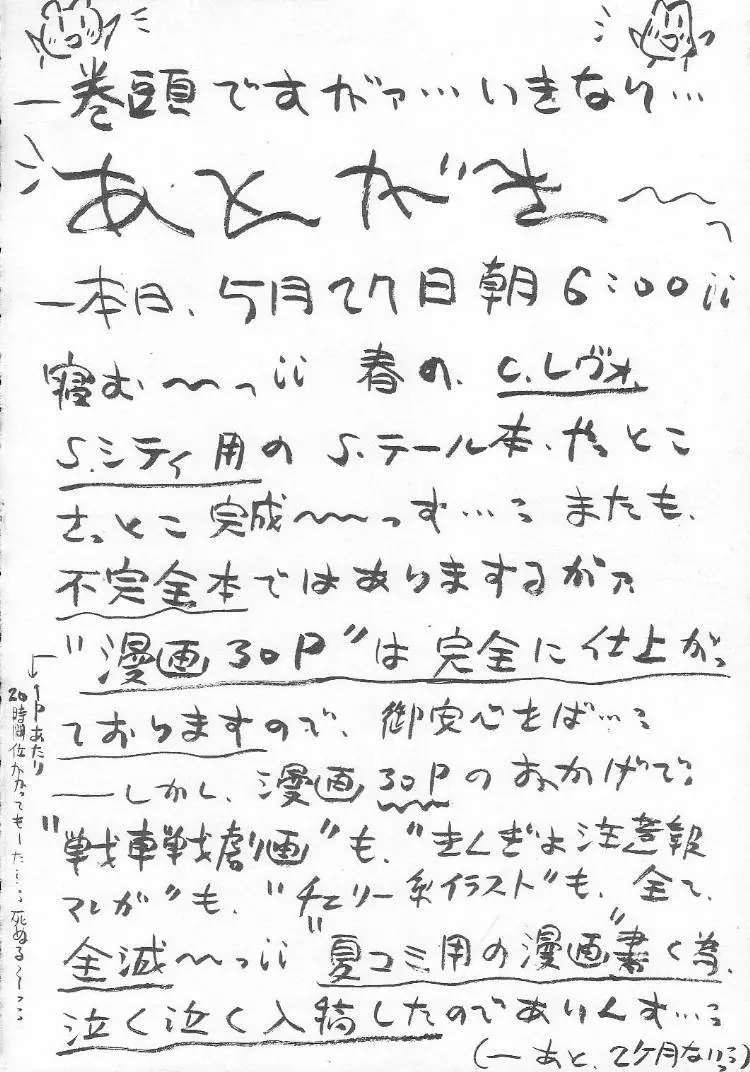 ―巻頭ですがァ…いきなり…
あとがき～～っ
―本日、5月27日朝6:00¡¡
寝む～～っ¡¡ 春の、C.レヴォ、
S.シティ用のS.テール本、やっとこ
さっとこ完成～～～っす…：またも、
不完全本ではありまするがァ
“漫画30P”は完全に仕上がっ
ておりますので、御安心をば…：
―しかし、漫画30Pのおかげで：
“戦車戦劇画”も、“きんぎょ注意報
マンガ”も、“チェリー系イラスト”も、全て、
全滅～～っ¡¡ “夏コミ用の漫画”書く為、
泣く泣く入稿したのでありんす…：
(―あと、2ケ月ない：)
←1Pあたり
20時間位かかってもーた…：死ぬる～っ：